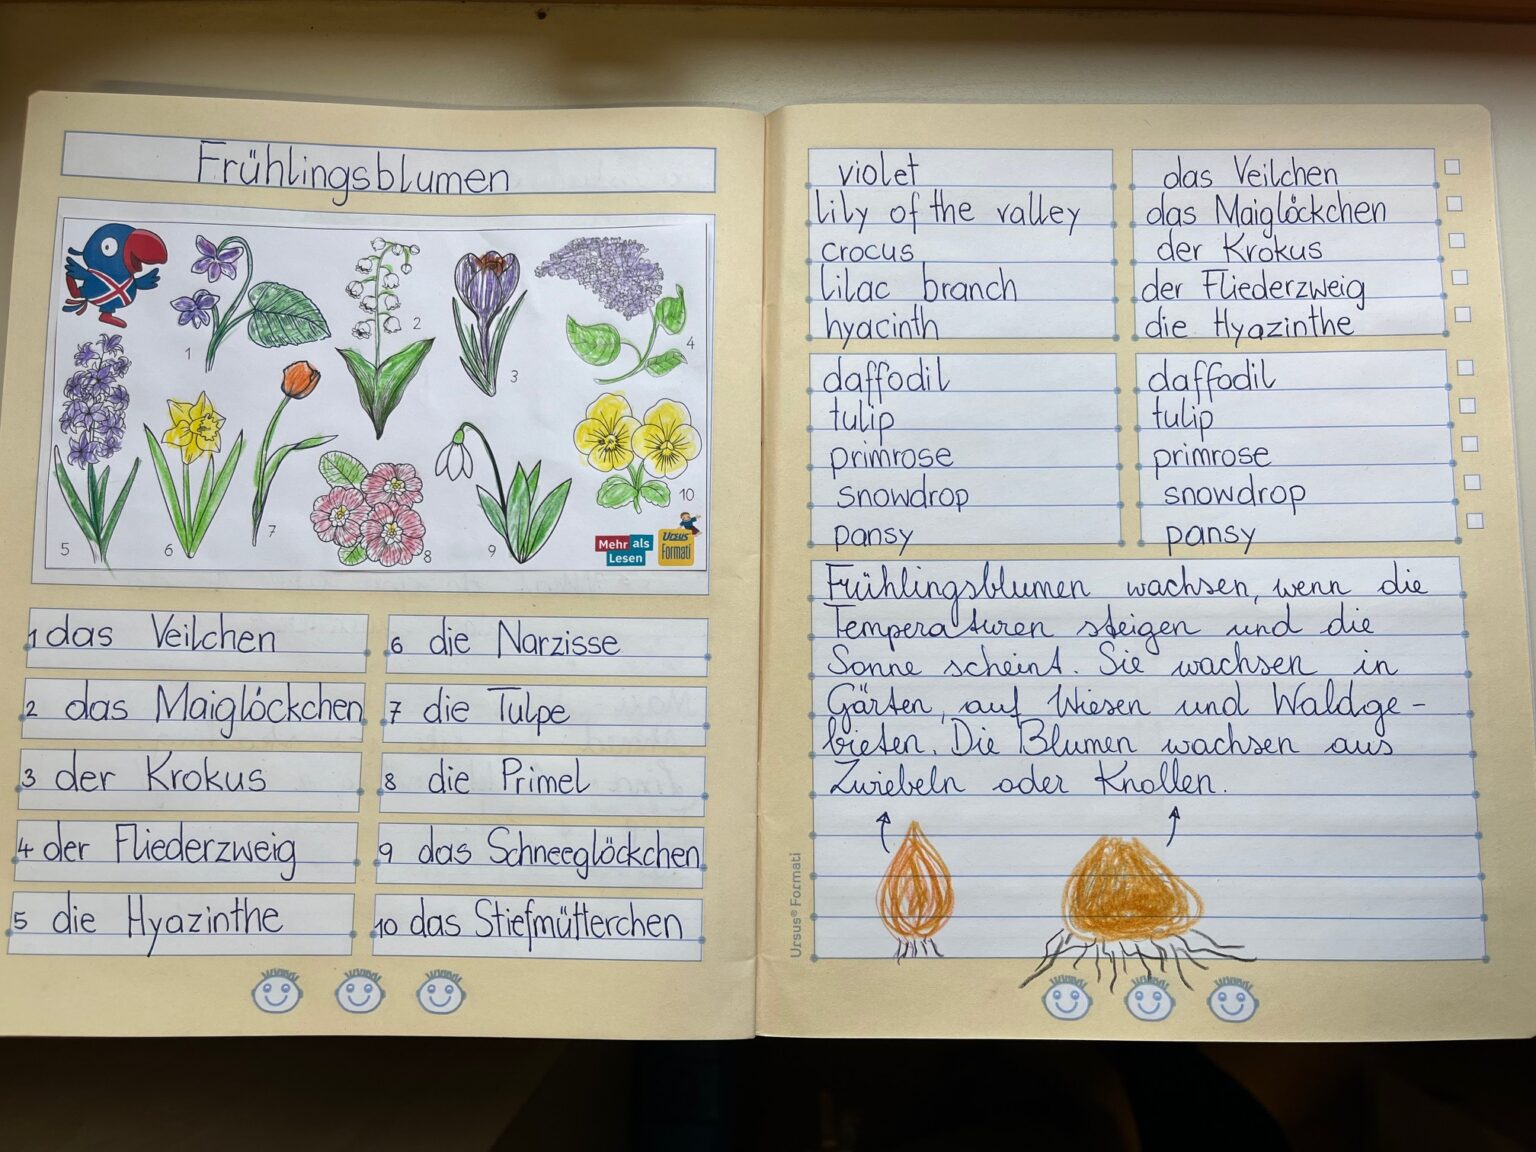 Frühlingsblumen
1
2
3
4
5
6
7
8
9
10
Mehr als
Lesen
Ursus
Formati
1 das Veilchen
2 das Maiglöckchen
3 der Krokus
4 der Fliederzweig
5 die Hyazinthe
6 die Narzisse
7 die Tulpe
8 die Primel
9 das Schneeglöckchen
10 das Stiefmütterchen
violet
lily of the valley
crocus
lilac branch
hyacinth
das Veilchen
das Maiglöckchen
der Krokus
der Fliederzweig
die Hyazinthe
daffodil
tulip
primrose
snowdrop
pansy
daffodil
tulip
primrose
snowdrop
pansy
Frühlingsblumen wachsen, wenn die
Temperaturen steigen und die
Sonne scheint. Sie wachsen in
Gärten, auf Wiesen und Waldge-
bieten. Die Blumen wachsen aus
Zwiebeln oder Knollen.
Ursus® Formati